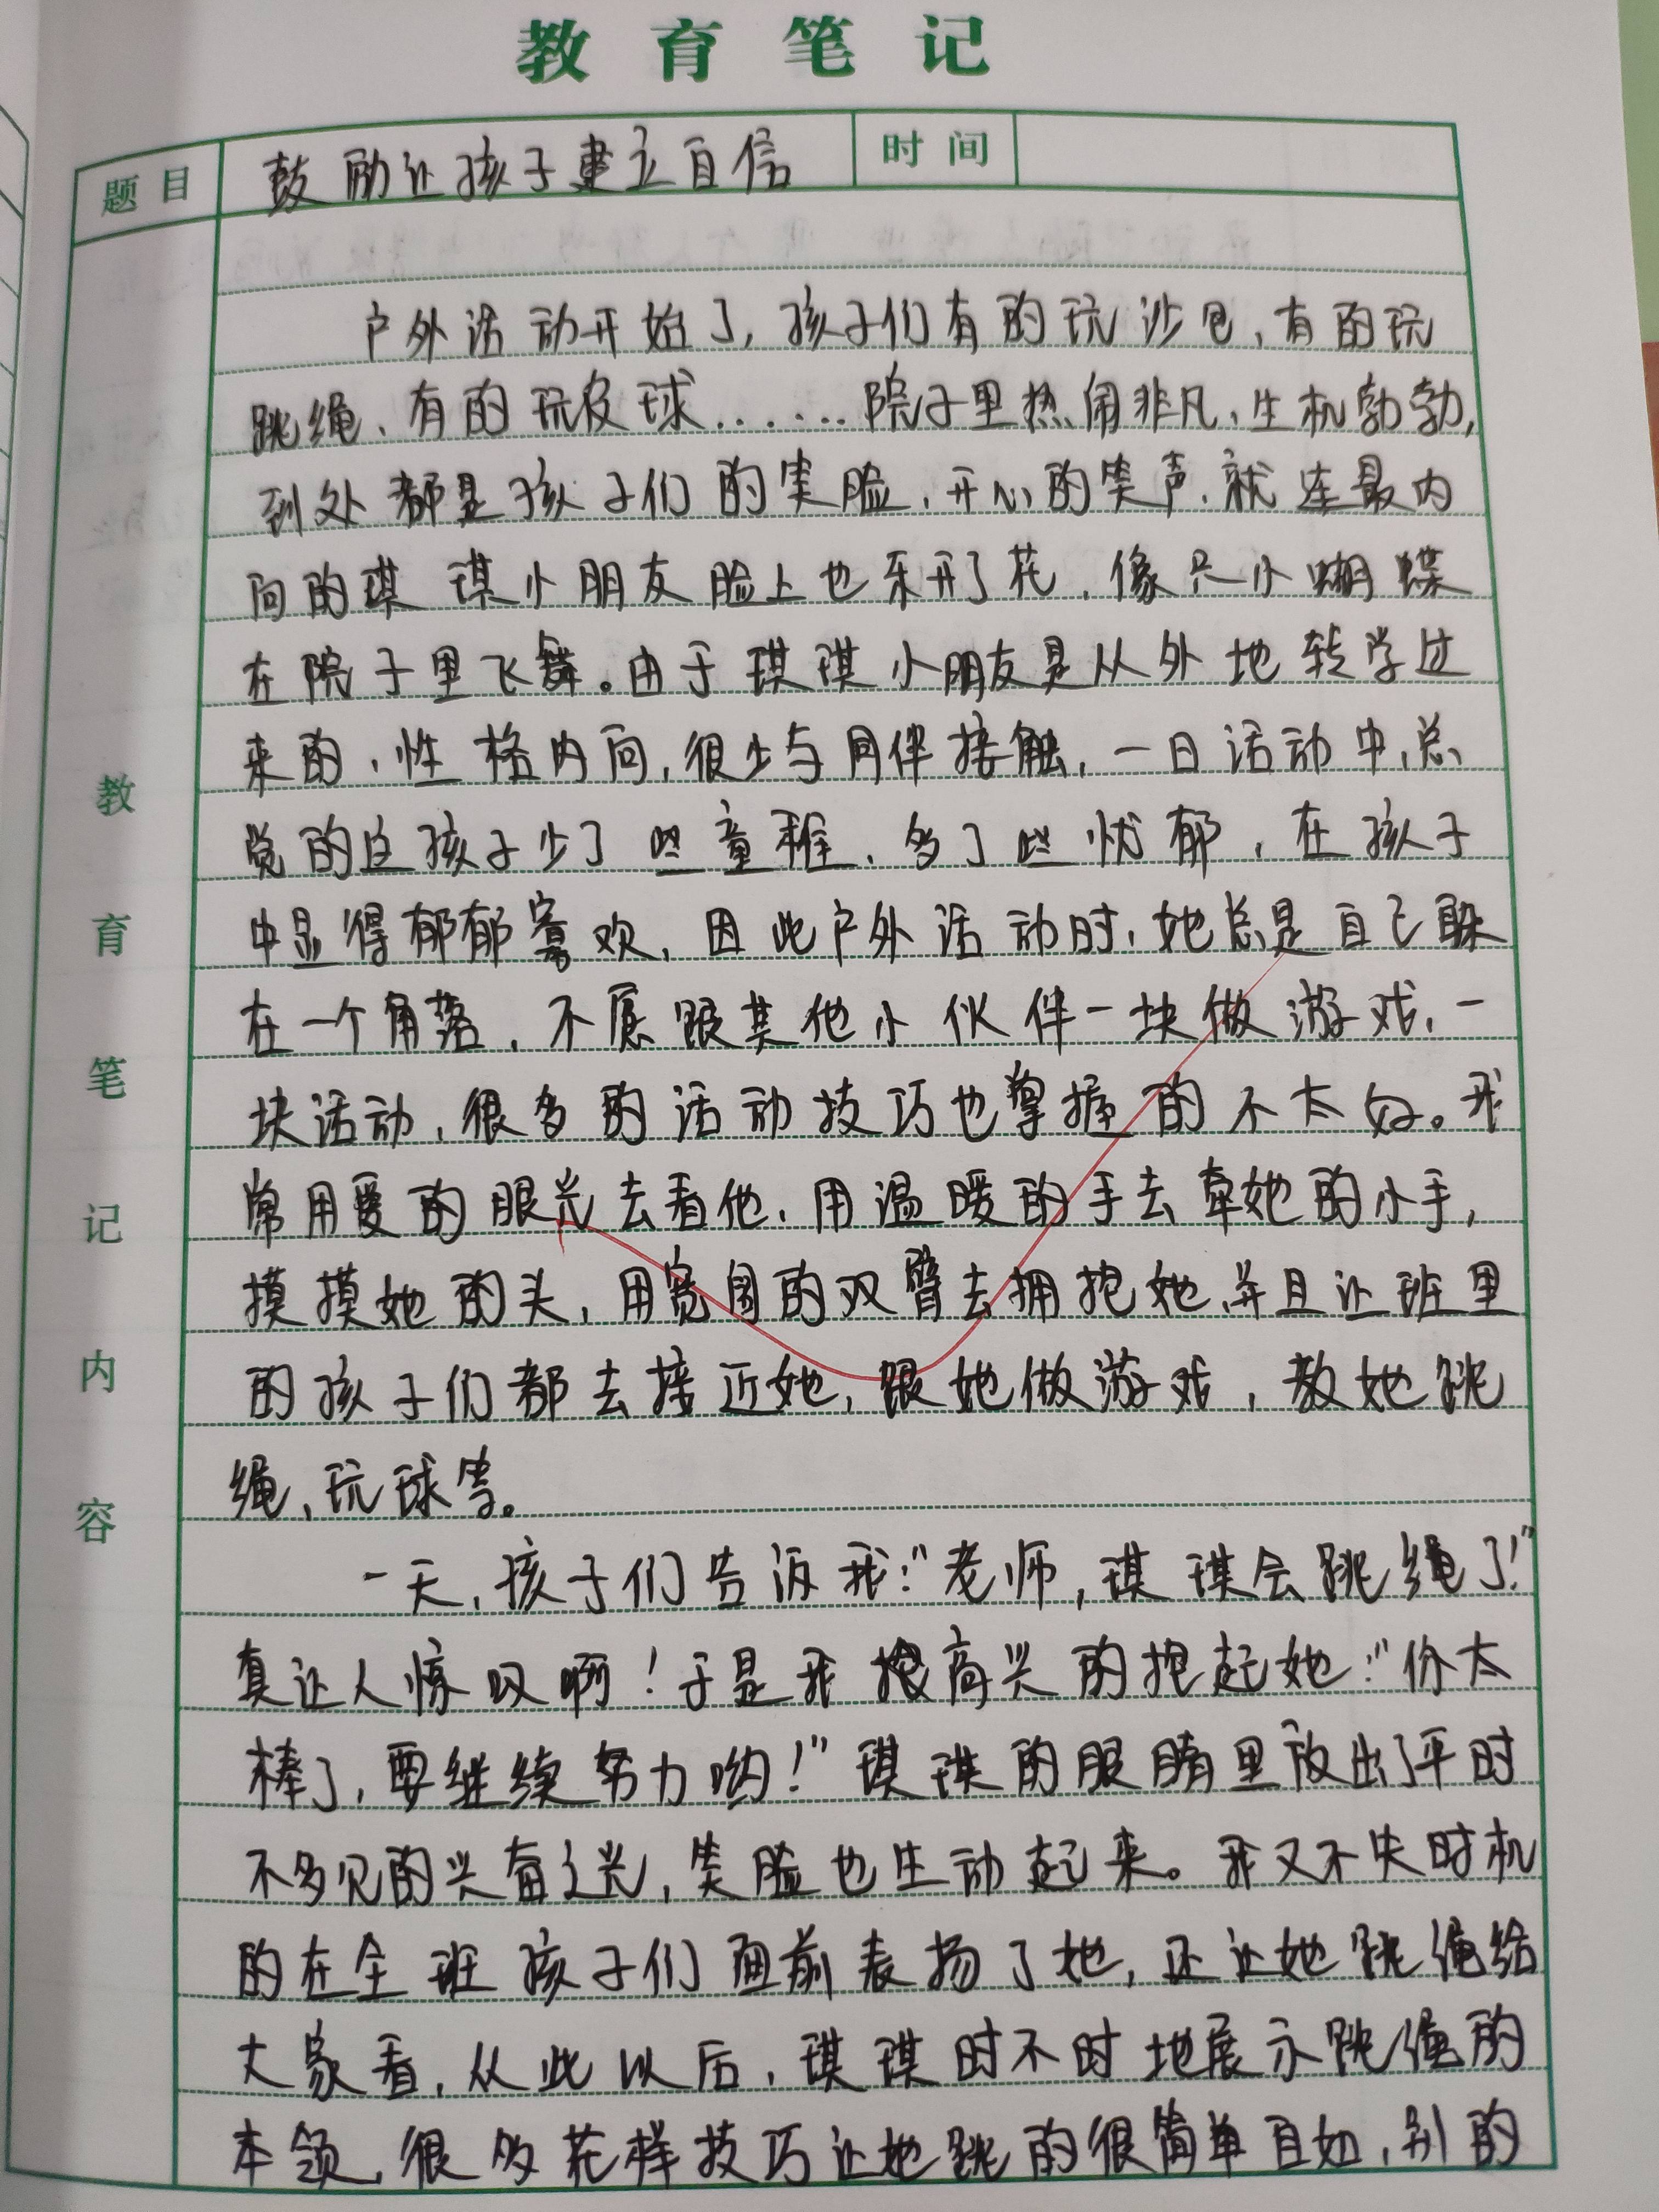 教育笔记
题目 鼓励让孩子建立自信 时间
户外活动开始了,孩子们有的玩沙包,有的玩
跳绳、有的玩皮球......院子里热闹非凡、生机勃勃,
到处都是孩子们的笑脸,开心的笑声.就连最内
向的琪琪小朋友脸上也乐开了花,像只小蝴蝶
在院子里飞舞。由于琪琪小朋友是从外地转学过
来的,性格内向,很少与同伴接触,一日活动中,总
觉的这孩子少了些童稚、多了些忧郁,在孩子
中显得郁郁寡欢,因此户外活动时,她总是自己躲
在一个角落,不愿跟其他小伙伴一块做游戏,一
块活动,很多的活动技巧也掌握的不太好。我
常用爱的眼光去看他,用温暖的手去牵她的小手,
摸摸她的头,用宽阔的双臂去拥抱她,并且让班里
的孩子们都去接近她,跟她做游戏,教她跳
绳、玩球等。
一天,孩子们告诉我:"老师,琪琪会跳绳了!"
真让人惊叹啊!于是我高兴的抱起她:"你太
棒了,要继续努力哟!"琪琪的眼睛里放出了平时
不多见的兴奋之光,笑脸也生动起来。我又不失时机
的在全班孩子们面前表扬了她,还让她跳绳给
大家看,从此以后,琪琪时不时地展示跳绳的
本领,很多花样技巧让她跳的很简单自如,别的
教育笔记内容